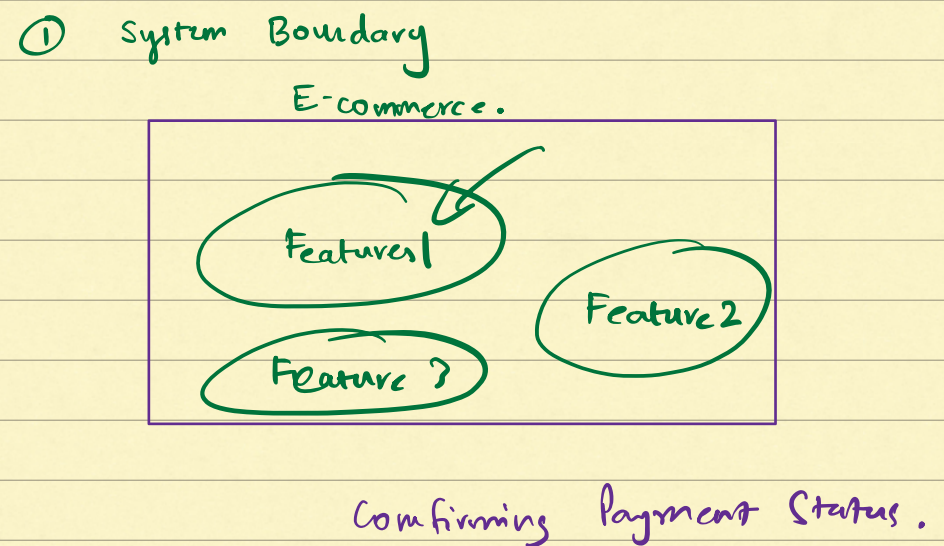 ① System Boundary
E-commerce.
Features1
Feature 2
Feature 3
Confirming Payment Status.